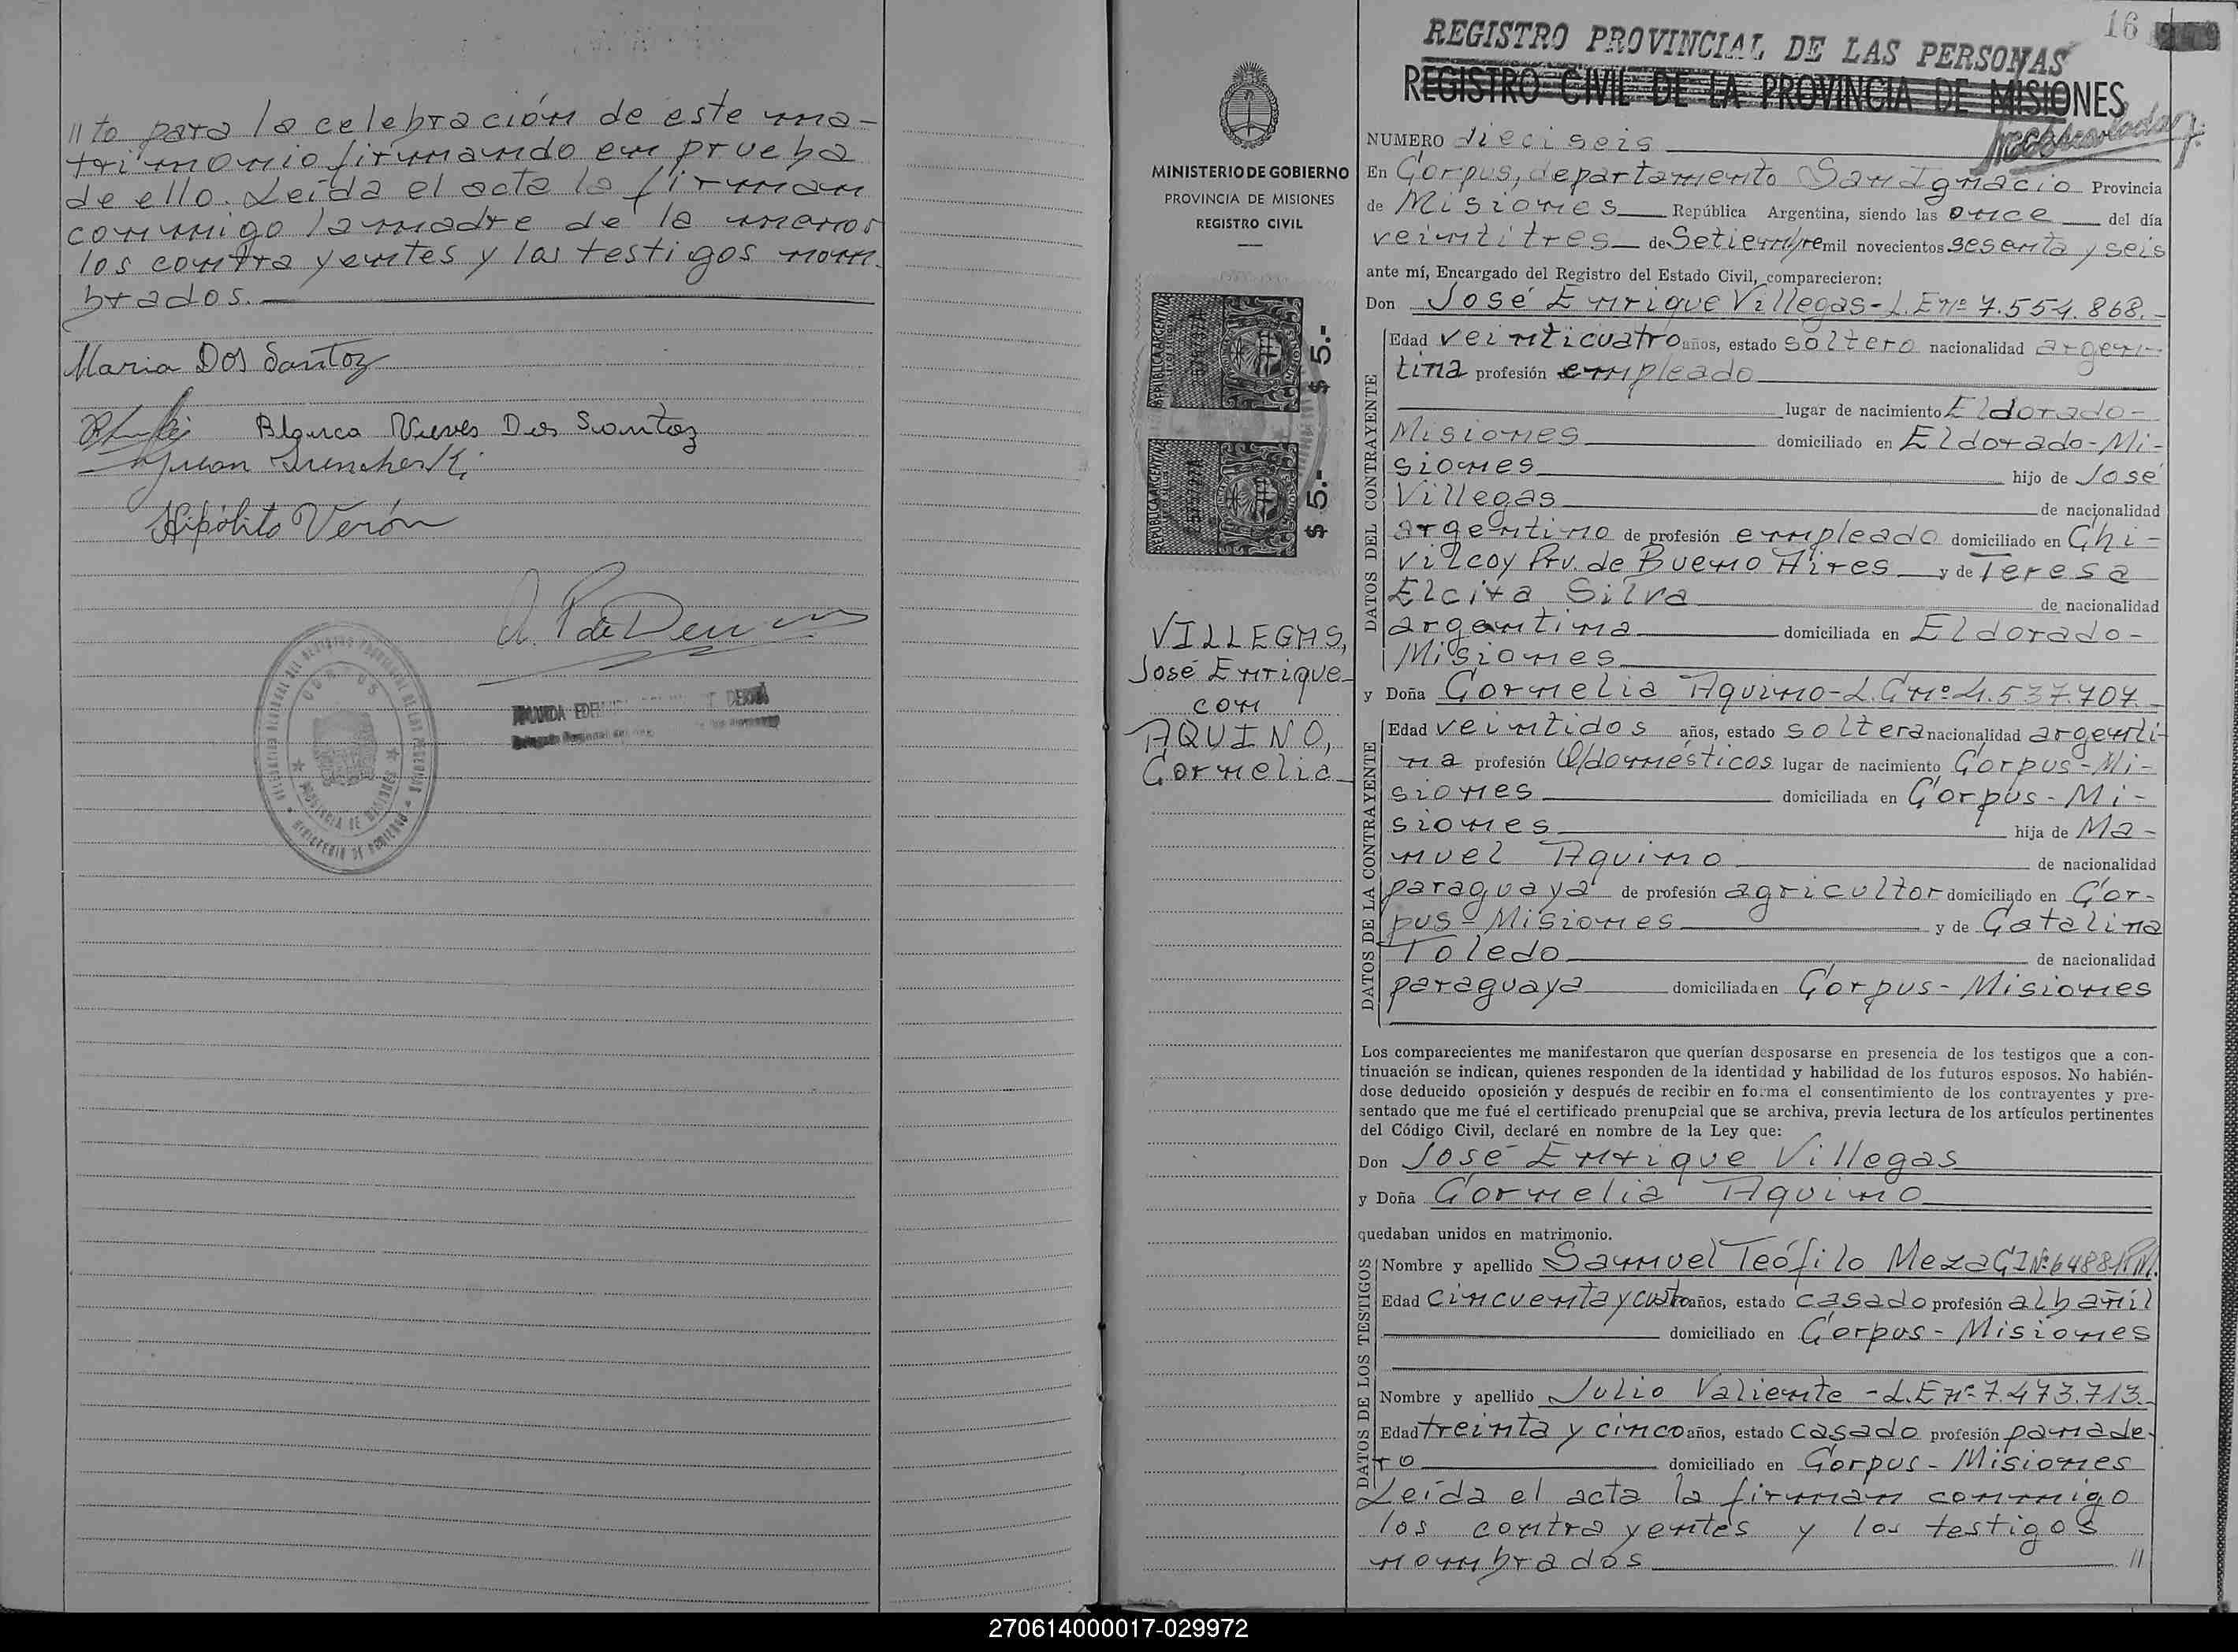 //to para la celebración de este ma-
trimonio firmando en prueba
de ello. Leída el acta la firman
conmigo la madre de la menor
los contrayentes y los testigos nom-
brados.
Maria Dos Santoz
Blanca Nieves Dos Santoz
Juan
Hipólito Verón
PROVINCIA DE MISIONES
MINISTERIO DE GOBIERNO
MINISTERIO DE GOBIERNO
PROVINCIA DE MISIONES
REGISTRO CIVIL
REPUBLICA ARGENTINA
$ 5.-
REPUBLICA ARGENTINA
$ 5.-
VILLEGAS,
José Enrique
con
AQUINO,
Cornelia
16
REGISTRO PROVINCIAL DE LAS PERSONAS
REGISTRO CIVIL DE LA PROVINCIA DE MISIONES
NUMERO dieciseis
En Corpus, departamento San Ignacio Provincia
de Misiones República Argentina, siendo las once del día
veintitres de Setiembre mil novecientos sesenta y seis
ante mí, Encargado del Registro del Estado Civil, comparecieron:
Don José Enrique Villegas-L.E nº 7.554.868.-
DATOS DEL CONTRAYENTE
Edad veinticuatro años, estado soltero nacionalidad argen-
tina profesión empleado
lugar de nacimiento Eldorado-
Misiones domiciliado en Eldorado-Mi-
siones hijo de José
Villegas de nacionalidad
argentino de profesión empleado domiciliado en Chi-
vilcoy Prv. de Bueno Aires y de Teresa
Elcira Silva de nacionalidad
argentina domiciliada en Eldorado-
Misiones
y Doña Cornelia Aquino-L.C nº 4.537.707.-
DATOS DE LA CONTRAYENTE
Edad veintidos años, estado soltera nacionalidad argenti-
na profesión Q/domésticos lugar de nacimiento Corpus-Mi-
siones domiciliada en Corpus-Mi-
siones hija de Ma-
nuel Aquino de nacionalidad
paraguaya de profesión agricultor domiciliado en Cor-
pus-Misiones y de Catalina
Toledo de nacionalidad
paraguaya domiciliada en Corpus-Misiones
Los comparecientes me manifestaron que querían desposarse en presencia de los testigos que a con-
tinuación se indican, quienes responden de la identidad y habilidad de los futuros esposos. No habién-
dose deducido oposición y después de recibir en forma el consentimiento de los contrayentes y pre-
sentado que me fué el certificado prenupcial que se archiva, previa lectura de los artículos pertinentes
del Código Civil, declaré en nombre de la Ley que:
Don José Enrique Villegas
y Doña Cornelia Aquino
quedaban unidos en matrimonio.
DATOS DE LOS TESTIGOS
Nombre y apellido Samuel Teófilo Meza CI Nº 6488
Edad cincuenta y cuatro años, estado casado profesión albañil
domiciliado en Corpus-Misiones
Nombre y apellido Julio Valiente -L.E nº 7.473.713.-
Edad treinta y cinco años, estado casado profesión panade-
ro domiciliado en Corpus-Misiones
Leída el acta la firman conmigo
los contrayentes y los testigos
nombrados //
270614000017-029972